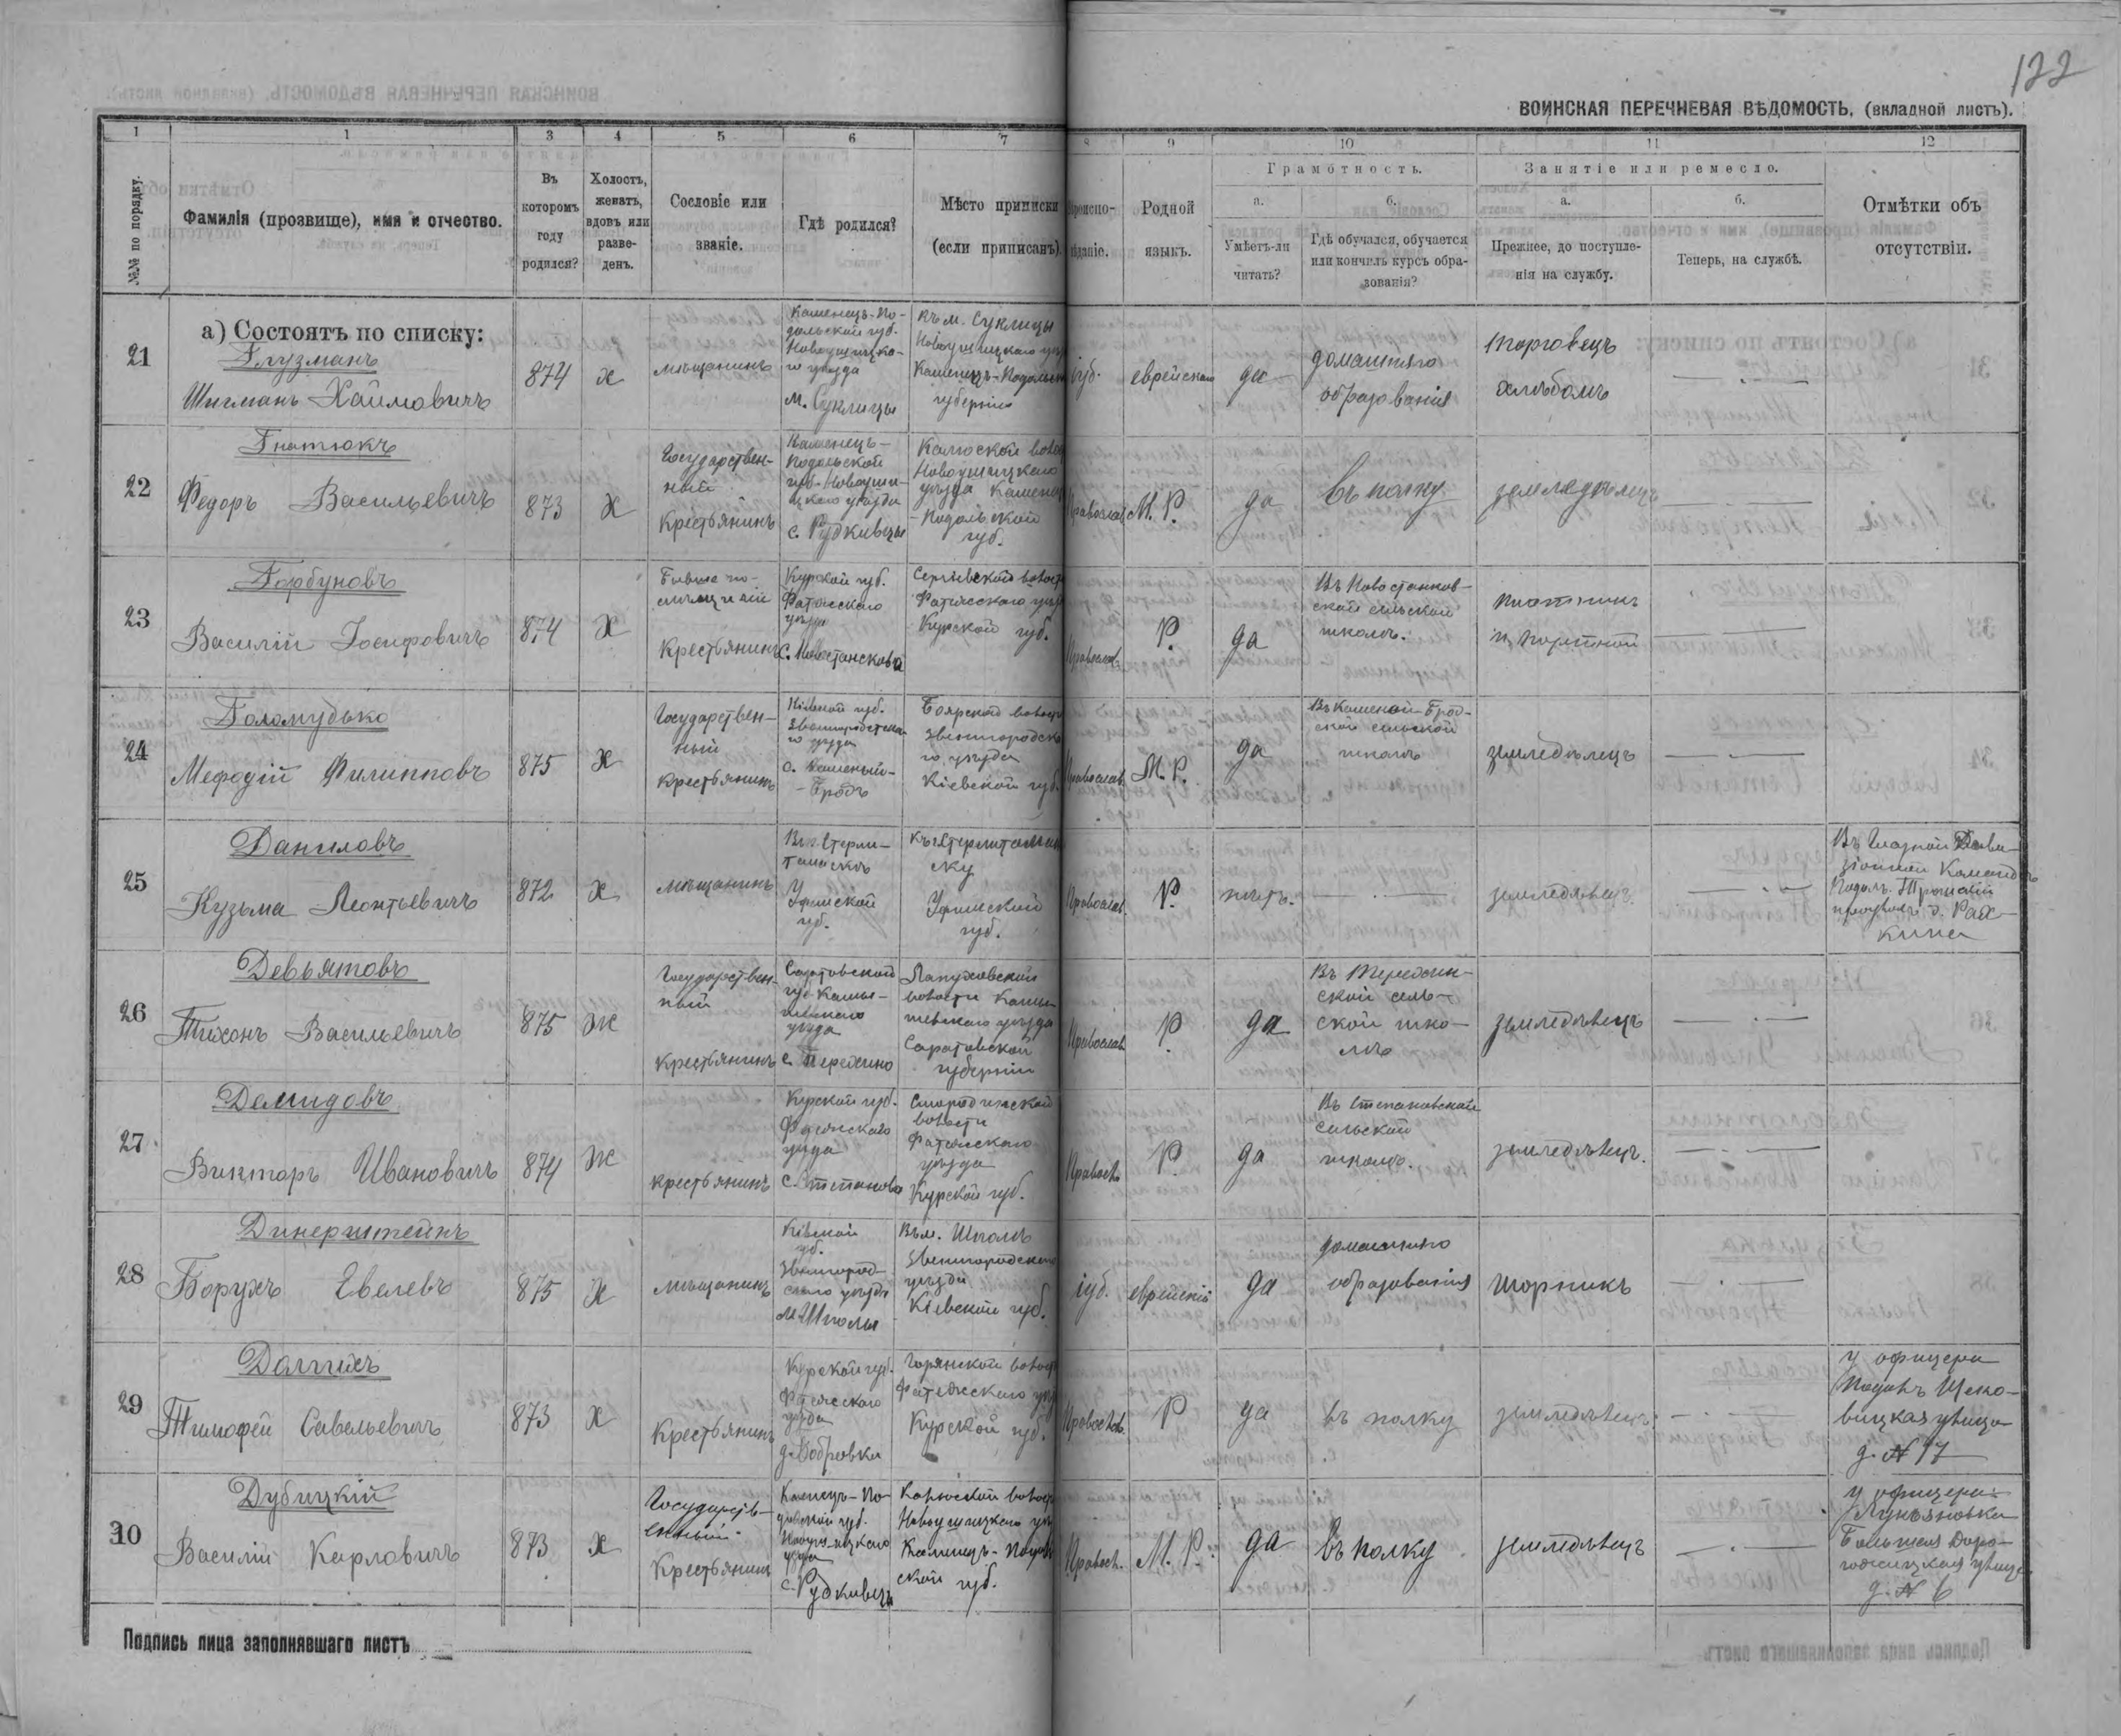 122
ВОИНСКАЯ ПЕРЕЧНЕВАЯ ВѢДОМОСТЬ, (вкладной листъ).
1 1 3 4 5 6 7 8 9 10 11 12
№№ по порядку.
Фамилія (прозвище), имя и отчество.
Въ
которомъ
году
родился?
Холостъ,
женатъ,
вдовъ или
разве-
денъ.
Сословіе или
званіе.
Гдѣ родился?
Мѣсто приписки
(если приписанъ).
Родной
языкъ.
Грамотность.
а.
Умѣетъ-ли
читать?
б.
Гдѣ обучался, обучается
или кончилъ курсъ обра-
зованія?
Занятіе или ремесло.
а.
Прежнее, до поступле-
нія на службу.
б.
Теперь, на службѣ.
Отмѣтки объ
отсутствіи.
а) Состоятъ по списку:
21
Глузманъ
Шигманъ Хаймовичъ
874
х
мѣщанинъ
Каменецъ-По-
дольской губ.
Новоушицка-
го уѣзда
м. Суклицы
Къ м. Суклицы
Новоушицкаго
Каменецъ-Подольск
губерніи
іуд.
еврейскаго
да
домашняго
образованія
торговецъ
хлѣбомъ
22
Гнатюкъ
Федоръ Васильевичъ
873
х
Государствен-
ный
крестьянинъ
Каменецъ-
Подольской
губ. Новоуши-
цкаго уѣзда
с. Рудкивцы
Калюской волос
Новоушицкаго
уѣзда Каменец
-Подольской
губ.
Православ.
М. Р.
да
въ полку
земледѣлецъ
23
Горбуновъ
Василій Іосифовичъ
874
х
Бывше по-
мѣщичій
крестьянинъ
Курской губ.
Фатежскаго
уѣзда
Сергіевской волост
Фатежскаго уѣз
Курской губ.
Православ.
Р.
да
школѣ.
плотникъ
и портной
24
Голомудько
Мефодій Филипповъ
875
х
Государствен-
ный
крестьянинъ
Кіевской губ.
Звенигородска-
го уѣзда
с. Каменный-
-Бродъ
Боярской волост
Звенигородска
го уѣзда
Кіевской губ.
Православ.
М. Р.
да
Въ Каменой-Брод-
ской сельской
школѣ
земледѣлецъ
25
Даниловъ
Кузьма Леонтьевичъ
872
х
мѣщанинъ
Въ г. Стерли-
тамакѣ
Уфимской
губ.
Уфимской
губ.
Православ.
Р.
нѣтъ.
земледѣлецъ.
26
Девьятовъ
Тихонъ Васильевичъ
875
ж
Государствен-
ный
крестьянинъ
Саратовской
губ. Камы-
шинскаго
уѣзда
волости Камы-
шинскаго уѣзда
Саратовской
губерніи
Православ.
Р.
да
ской сель-
ской шко-
лѣ
земледѣлецъ
27
Демидовъ
Викторъ Ивановичъ
874
ж
крестьянинъ
Курской губ.
Фатежскаго
уѣзда
с. Степаново
Смородинской
волости
Фатежскаго
уѣзда
Курской губ.
Правосл.
Р.
да
Въ Степановской
сельской
школѣ.
земледѣлецъ.
28
Динерштейнъ
Борухъ Евелевъ
875
х
мѣщанинъ
Кіевской
губ.
Звенигород-
скаго уѣзда
м. Шполы
Въ м. Шполѣ
Звенигородскаго
уѣзда
Кіевской губ.
іуд.
еврейскій
да
домашняго
образованія
шорникъ
29
Долгихъ
Тимофей Савельевичъ
873
х
крестьянинъ
Курской губ.
Фатежскаго
уѣзда
д. Бобровки
Фатежскаго уѣз
Курской губ.
Православ.
Р
да
въ полку
земледѣлецъ
у офицера
Подолъ Щеко-
вицкая улица
д. № 17
30
Дубицкій
Василій Карловичъ
873
х
Государств-
енный
крестьянинъ
Каменецъ-По-
дольской губ.
Новоушицкаго
уѣзда
с. Рудкивцы
Калюской волост
Новоушицкаго уѣз
Каменецъ-Подол
ской губ.
Правосл.
М. Р.
да
въ полку
земледѣлецъ
у офицера
Лукьяновка
Большая Доро-
гожицкая улица
д. № 6
Подпись лица заполнявшаго листъ